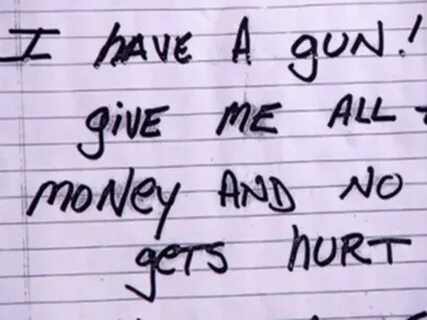 I HAVE A GUN!
GIVE ME ALL
MONEY AND NO
GETS HURT